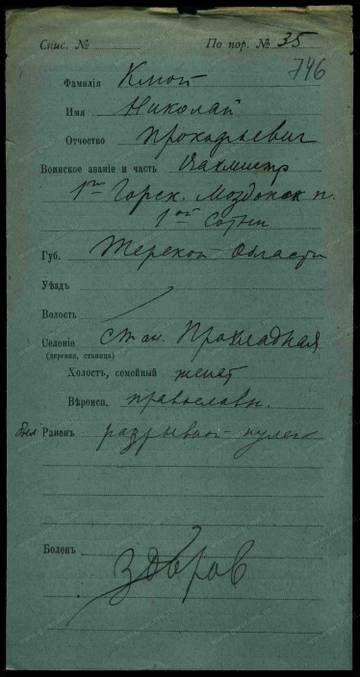 Спис. № По пор. № 35
746
Фамилія Кмой
Имя Николай
Отчество Прокофьевич
Воинское званіе и часть Вахмистр
1го Горск. Моздокск п.
1ой Сотни
Губ. Терской Области
Уѣздъ
Волость
Селеніе стан. Прохладная
(деревня, станица)
Холость, семейный женат
Вѣроисп. православн.
был Раненъ разрывной пулей
Боленъ
здоров